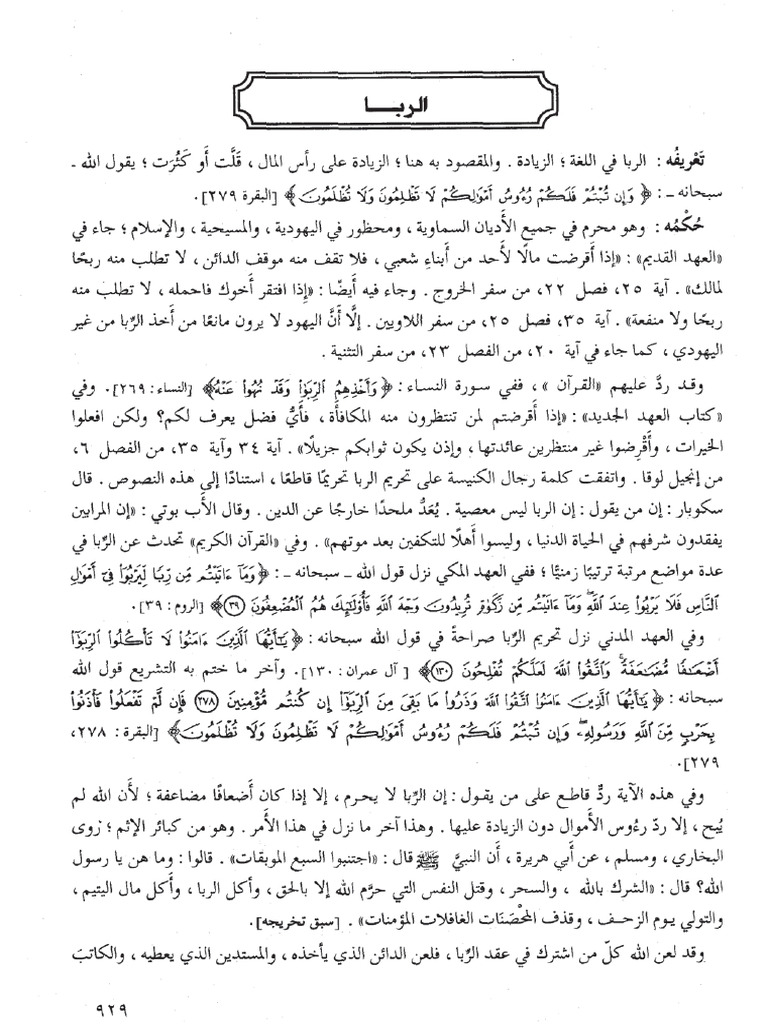 الربا
تَعْرِيفُه : الربا في اللغة ؛ الزيادة . والمقصود به هنا ؛ الزيادة على رأس المال ، قَلَّت أَو كَثُرَت ؛ يقول الله ـ
سبحانه ـ : ﴿ وَإِن تُبْتُمْ فَلَكُمْ رُءُوسُ أَمْوَالِكُمْ لَا تَظْلِمُونَ وَلَا تُظْلَمُونَ ﴾ [البقرة ٢٧٩].
حُكْمُه : وهو محرم في جميع الأديان السماوية ، ومحظور في اليهودية ، والمسيحية ، والإسلام ؛ جاء في
«العهد القديم» : «إذا أَقرضت مالًا لأَحد من أَبناءِ شعبي ، فلا تقف منه موقف الدائن ، لا تطلب منه ربحًا
لمالك» . آية ٢٥، فصل ٢٢، من سفر الخروج . وجاء فيه أَيضًا : «إذا افتقر أَخوك فاحمله ، لا تطلب منه
ربحًا ولا منفعة» . آية ٣٥، فصل ٢٥، من سفر اللاويين . إلَّا أَنَّ اليهود لا يرون مانعًا من أَخذ الرِّبا من غير
اليهودي ، كما جاء في آية ٢٠، من الفصل ٢٣، من سفر التثنية .
وقد ردَّ عليهم «القرآن » ، ففي سورة النساء : ﴿وَأَخْذِهِمُ الرِّبَوٰا وَقَدْ نُهُوا عَنْهُ﴾ [النساء : ٢٦٩]. وفي
«كتاب العهد الجديد» : «إذا أَقرضتم لمن تنتظرون منه المكافأَة ، فأَيُّ فضل يعرف لكم؟ ولكن افعلوا
الخيرات ، وأَقْرِضوا غير منتظرين عائدتها ، وإذن يكون ثوابكم جزيلًا» . آية ٣٤ وآية ٣٥، من الفصل ٦،
من إنجيل لوقا . واتفقت كلمة رجال الكنيسة على تحريم الربا تحريمًا قاطعًا ، استنادًا إلى هذه النصوص . قال
سكوبار : إن من يقول : إن الربا ليس معصية . يُعَدُّ ملحدًا خارجًا عن الدين . وقال الأَب بوتي : «إن المرابين
يفقدون شرفهم في الحياة الدنيا ، وليسوا أَهلًا للتكفين بعد موتهم» . وفي «القرآن الكريم» تحدث عن الرِّبا في
عدة مواضع مرتبة ترتيبًا زمنيًّا ؛ ففي العهد المكي نزل قول الله ـ سبحانه ـ : ﴿ وَمَا ءَاتَيْتُم مِّن رِّبًا لِّيَرْبُوَا۟ فِىٓ أَمْوَٰلِ
النَّاسِ فَلَا يَرْبُوا عِندَ اللَّهِ وَمَا ءَاتَيْتُم مِّن زَكَوٰةٍ تُرِيدُونَ وَجْهَ اللَّهِ فَأُولَٰئِكَ هُمُ الْمُضْعِفُونَ ٣٩﴾ [الروم : ٣٩].
وفي العهد المدني نزل تحريم الرِّبا صراحةً في قول الله سبحانه : ﴿ يَٰٓأَيُّهَا الَّذِينَ ءَامَنُوا لَا تَأْكُلُوا الرِّبَوٰٓا
أَضْعَٰفًا مُّضَٰعَفَةً وَاتَّقُوا اللَّهَ لَعَلَّكُمْ تُفْلِحُونَ ١٣٠﴾ [ آل عمران : ١٣٠]. وآخر ما ختم به التشريع قول الله
سبحانه : ﴿ يَٰٓأَيُّهَا الَّذِينَ ءَامَنُوا اتَّقُوا اللَّهَ وَذَرُوا مَا بَقِىَ مِنَ الرِّبَوٰٓا إِن كُنتُم مُّؤْمِنِينَ ٢٧٨ فَإِن لَّمْ تَفْعَلُوا فَأْذَنُوا
بِحَرْبٍ مِّنَ اللَّهِ وَرَسُولِهِ وَإِن تُبْتُمْ فَلَكُمْ رُءُوسُ أَمْوَٰلِكُمْ لَا تَظْلِمُونَ وَلَا تُظْلَمُونَ﴾ [البقرة : ٢٧٨،
٢٧٩].
وفي هذه الآية ردٌّ قاطع على من يقول : إن الرِّبا لا يحرم ، إلا إذا كان أَضعافًا مضاعفة ؛ لأَن الله لم
يُبح ، إلا ردّ رءُوس الأَموال دون الزيادة عليها . وهذا آخر ما نزل في هذا الأَمر . وهو من كبائر الإثم ؛ رَوى
البخاري ، ومسلم ، عن أَبي هريرة ، أَن النبيَّ ﷺ قال : «اجتنبوا السبع الموبقات» . قالوا : وما هن يا رسول
الله؟ قال : «الشرك بالله ، والسحر ، وقتل النفس التي حرَّم الله إلا بالحق ، وأَكل الربا ، وأَكل مال اليتيم ،
والتولي يوم الزحف ، وقذف المحْصَنَات الغافلات المؤمنات» . [سبق تخريجه].
وقد لعن الله كلّ من اشترك في عقد الرِّبا ، فلعن الدائن الذي يأخذه ، والمستدين الذي يعطيه ، والكاتبَ
٩٢٩